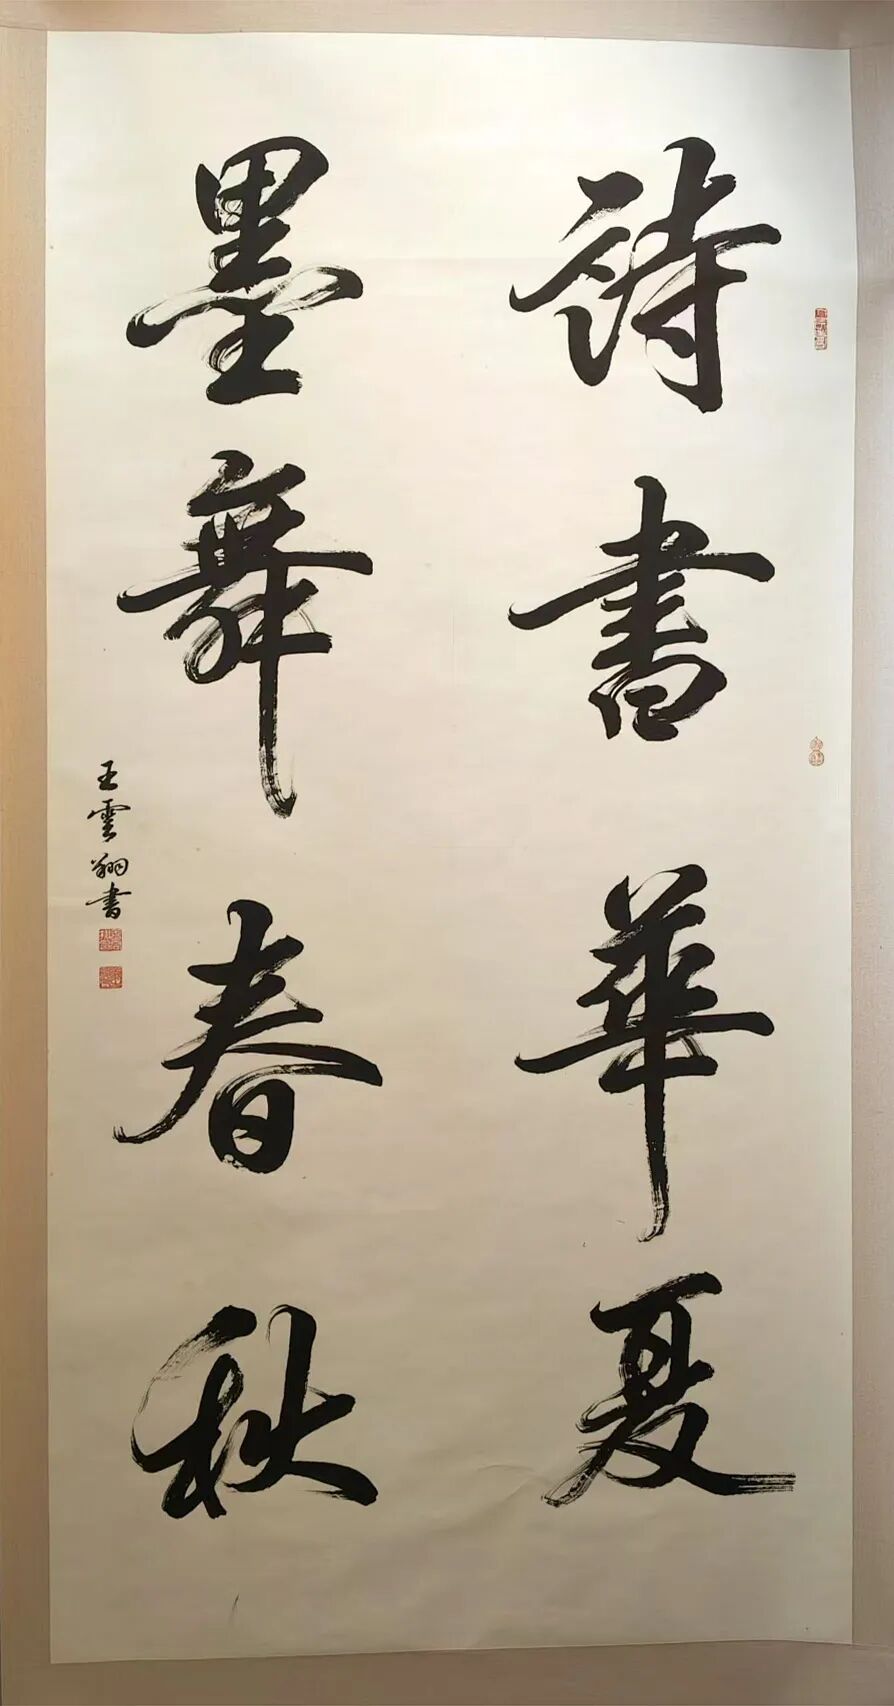 詩書華夏
墨舞春秋
王雲翔書